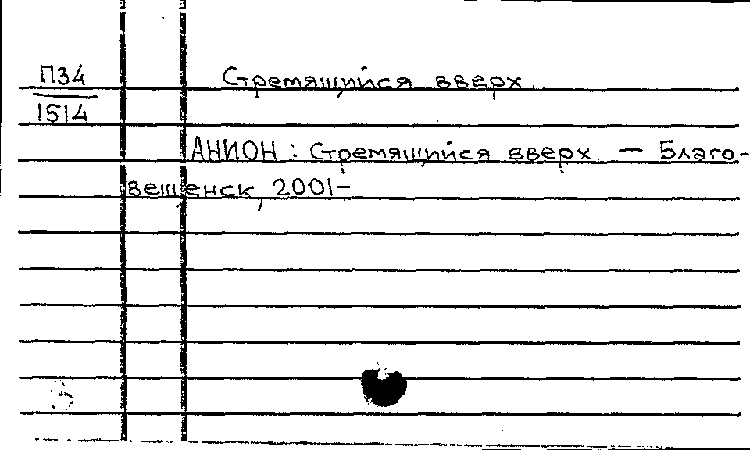 П34
1514
Стремящийся вверх.
АНИОН: Стремящийся вверх — Благо-
вещенск, 2001-